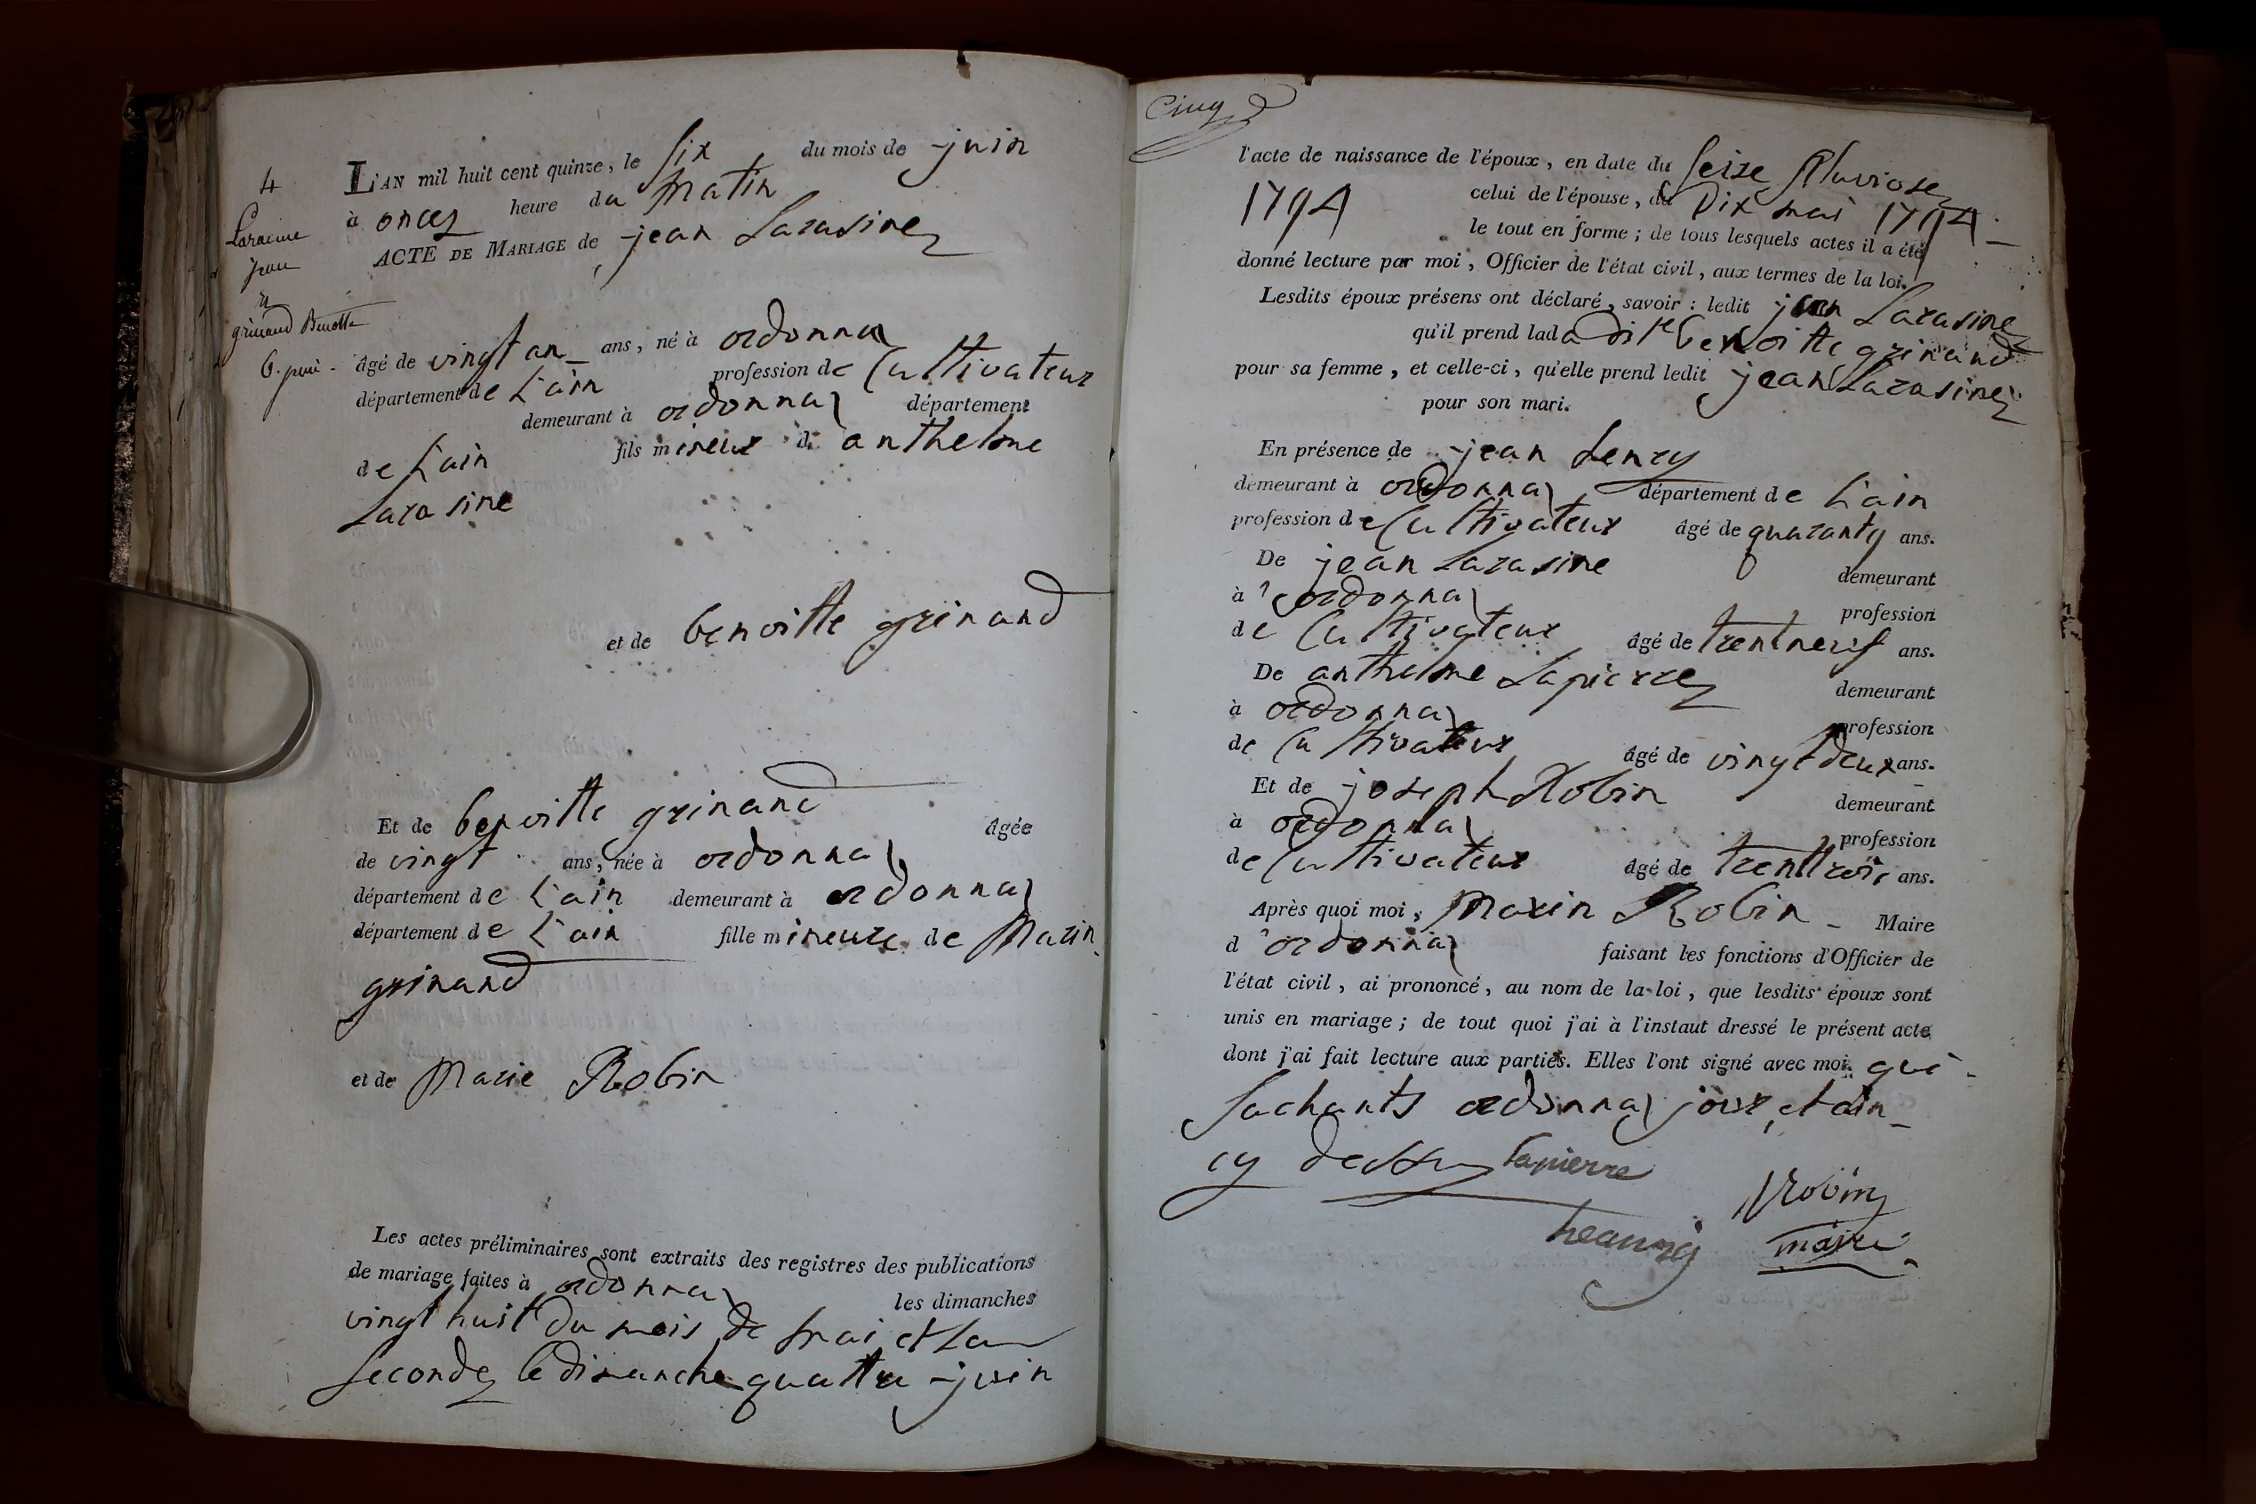 4
Laracine
jean
et
grinand Benoitte
6. juin
L'AN mil huit cent quinze, le Six du mois de juin
à onze heure du matin
ACTE DE MARIAGE de jean Larasine
âgé de vingt an ans, né à ordonna
département de L'ain profession de Cultivateur
demeurant à ordonna département
de L'ain fils mineur de anthelme
Larasine
et de benoitte grinand
Et de benoitte grinand âgée
de vingt ans, née à ordonna
département de L'ain demeurant à ordonna
département de L'ain fille mineure de Marin
grinand
et de Marie Robin
Les actes préliminaires sont extraits des registres des publications
de mariage faites à ordonna les dimanches
vingt huit du mois de mai et la
Seconde le dimanche quattre juin
Cinq
l'acte de naissance de l'époux, en date du Seize Pluviose
1794 celui de l'épouse, du Dix mai 1794
le tout en forme; de tous lesquels actes il a été
donné lecture par moi, Officier de l'état civil, aux termes de la loi.
Lesdits époux présens ont déclaré, savoir : ledit jean Larasine
qu'il prend lad a dite benoitte grinand
pour sa femme, et celle-ci, qu'elle prend ledit jean Larasine
pour son mari.
En présence de jean Lenry
demeurant à ordonna département de L'ain
profession de Cultivateur âgé de quarante ans.
De jean Larasine demeurant
à ordonna profession
de Cultivateur âgé de trentneuf ans.
De anthelme Lapierre demeurant
à ordonna profession
de Cultivateur âgé de vingt deux ans.
Et de joseph Robin demeurant
à ordonna profession
de Cultivateur âgé de trenttrois ans.
Après quoi moi, Marin Robin Maire
d'ordonna faisant les fonctions d'Officier de
l'état civil, ai prononcé, au nom de la loi, que lesdits époux sont
unis en mariage; de tout quoi j'ai à l'instaut dressé le présent acte
dont j'ai fait lecture aux parties. Elles l'ont signé avec moi. qui
Sachants ordonna jour et an
cy dessus lapierre
Robin
maire